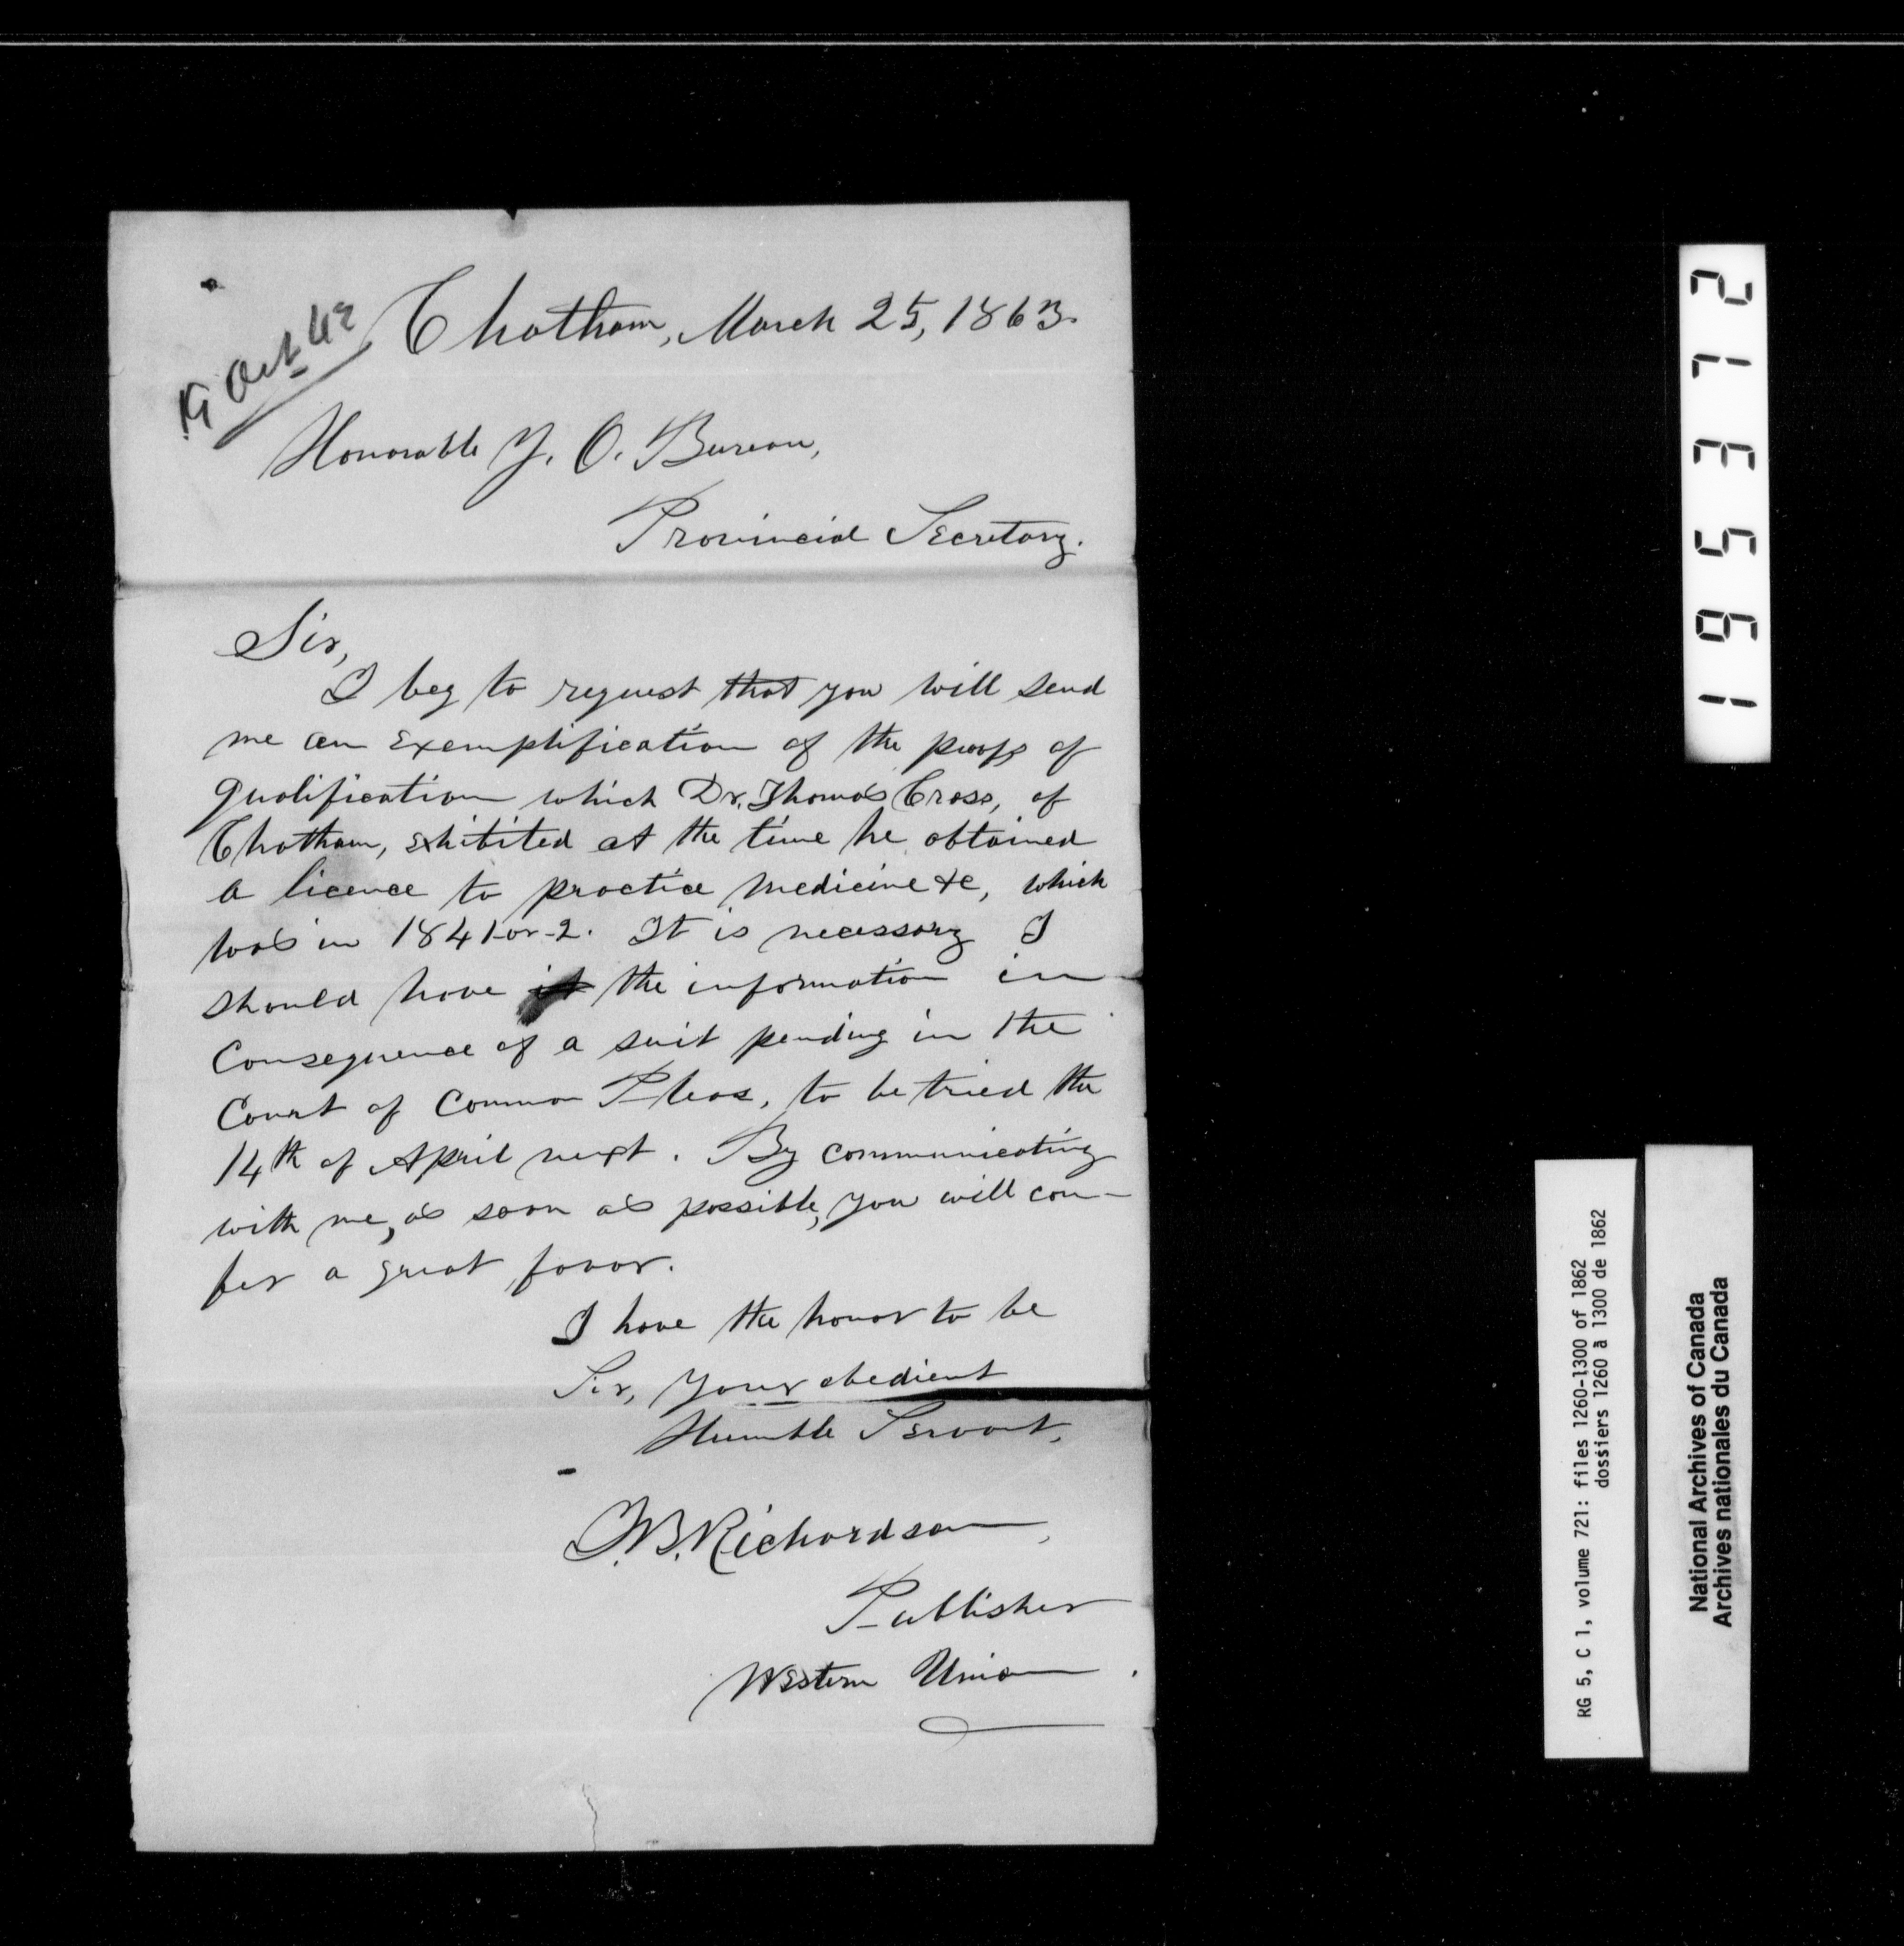 19 Oct 42
Chatham, March 25, 1863.
Honorable J. O. Bureau,
Provincial Secretary.
Sir,
I beg to request that you will send
me an exemplification of the proofs of
qualification which Dr. Thomas Cross, of
Chatham, exhibited at the time he obtained
a licence to practice medicine &c, which
was in 1841-or-2. It is necessary I
should have it the information in
consequence of a suit pending in the
Court of Common Pleas, to be tried the
14th of April next. By communicating
with me, as soon as possible, you will con-
fer a great favor.
I have the honor to be
Sir, your obedient
Humble Servant,
J.B. Richardson,
Publisher
Western Union.
195372
RG 5, C 1, volume 721: files 1260-1300 of 1862
dossiers 1260 à 1300 de 1862
National Archives of Canada
Archives nationales du Canada